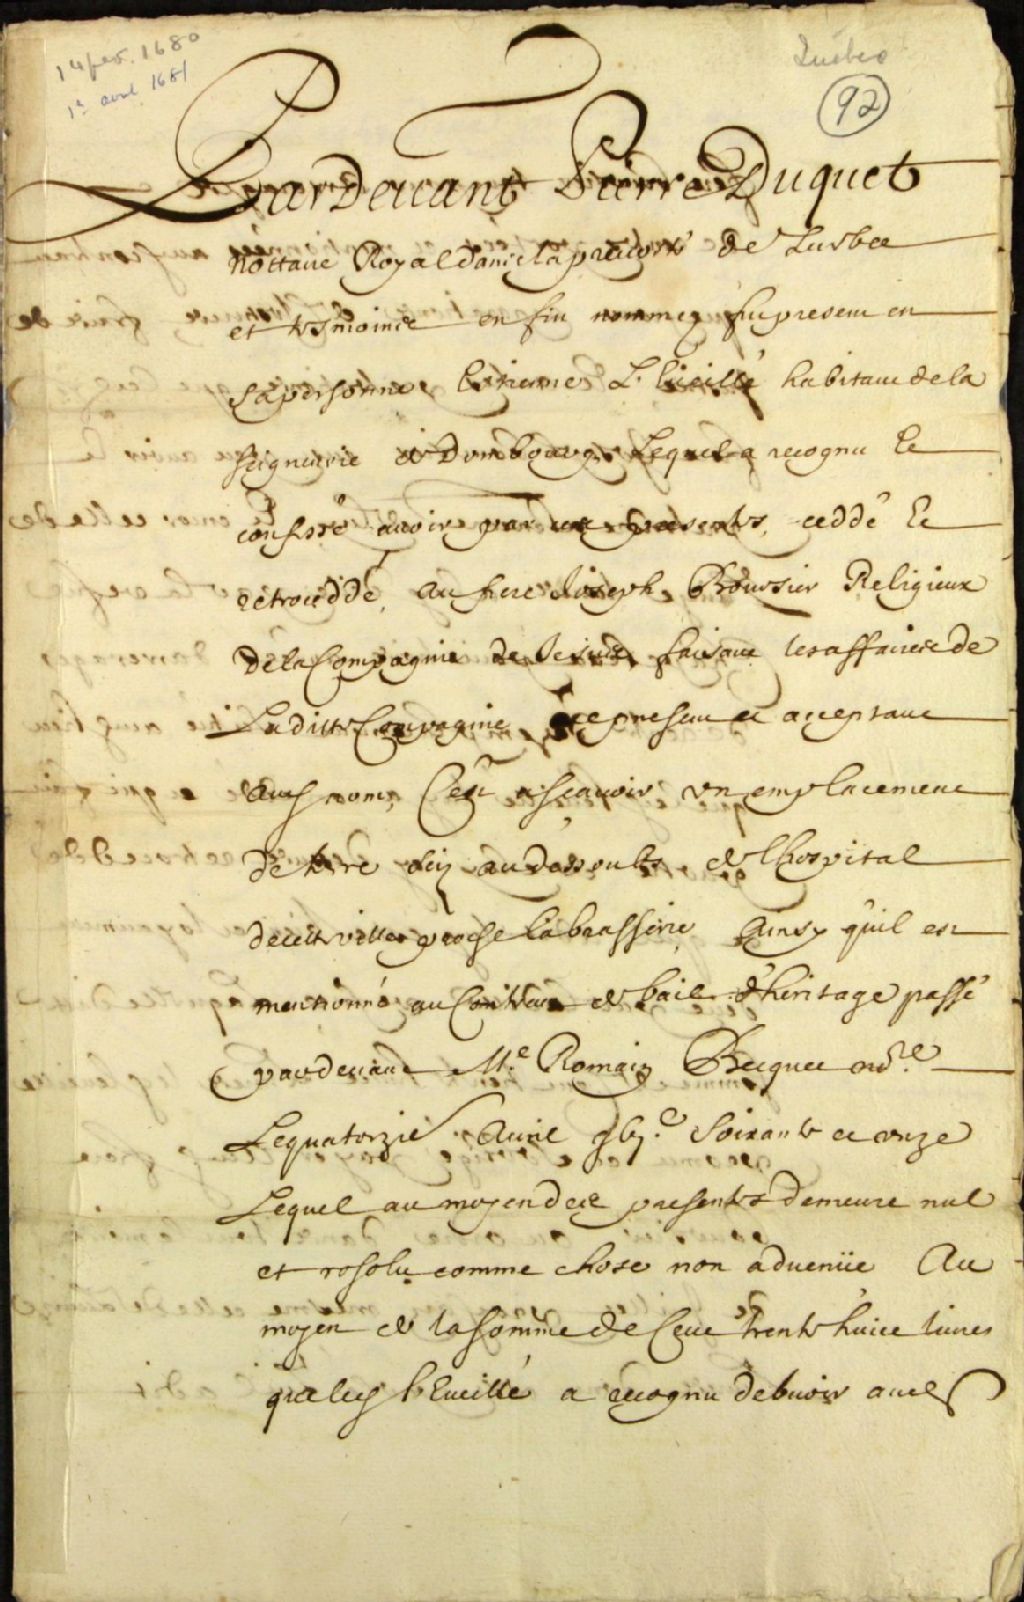 14 fev. 1680
1er avril 1681
Québec
92
Pardeuant Pierre Duquet
nottaire Royal dans la preuosté de Quebec
et tesmoins en fin nommez fut present en
sa personne Estienne L'Eueillé habitant de la
seigneurie de Dombourg Lequel a recognu Et
confessé auoir par ces presentes ceddé Et
retroceddé au frere Joseph Boursier Religieux
de la Compagnie de Jesus faisant les affaires de
Laditte Compagnie ce present et acceptant
aud nom, C'est asçauoir un emplacement
de terre sciz au dessoubs de l'hospital
de cette ville proche la brasserie Ainsy qu'il est
mentionné au Contract de bail d'heritage passé
pardeuant Me. Romain Becquet nore.
Le quatorzie Auril gbje. soixante et onze
Lequel au moyen des presentes demeure nul
et resolu comme chose non aduenüe Au
moyen de la somme de Cent trente huict liures
que led L'Eueillé a recognu debuoir aud